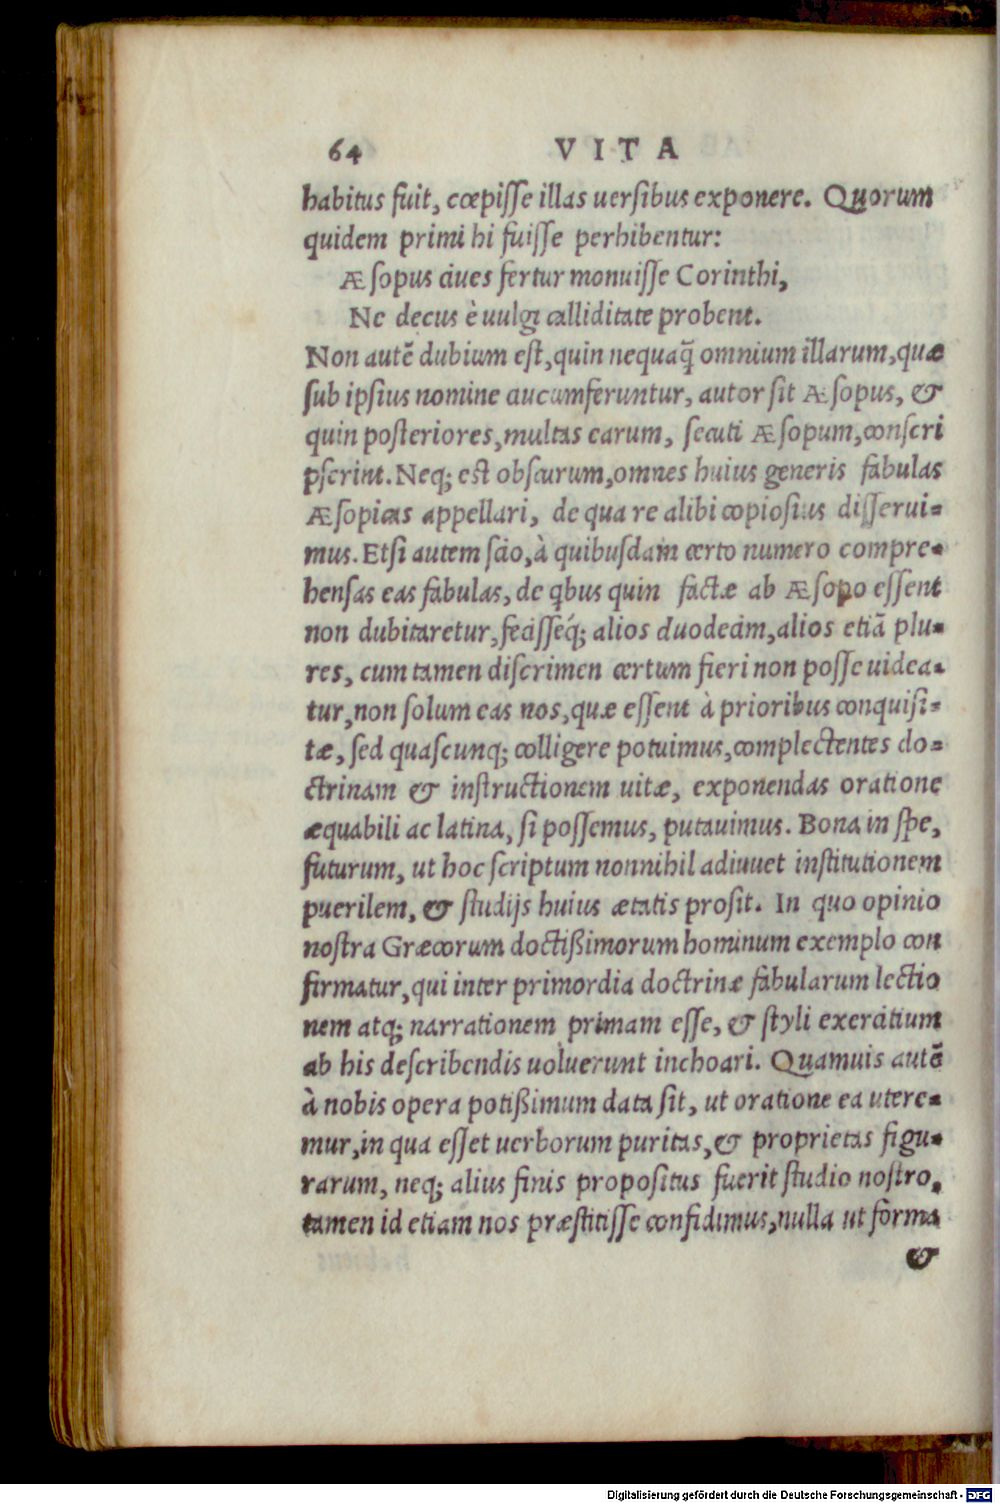 64 VITA
habitus fuit, cœpisse illas uersibus exponere. Quorum
quidem primi hi fuisse perhibentur:
Æsopus ciues fertur monuisse Corinthi,
Ne decus è uulgi calliditate probent.
Non autē dubium est, quin nequaq̃ omnium illarum, quæ
sub ipsius nomine circumferuntur, autor sit Æsopus, &
quin posteriores, multas earum, secuti Æsopum, conscri
pserint. Neq; est obscurum, omnes huius generis fabulas
Æsopicas appellari, de qua re alibi copiosius disserui=
mus. Etsi autem scio, à quibusdam certo numero compre=
hensas eas fabulas, de qbus quin factæ ab Æsopo essent
non dubitaretur, fecisseq́; alios duodecim, alios etiā plu=
res, cum tamen discrimen certum fieri non posse uidea=
tur, non solum eas nos, quæ essent à prioribus conquisi=
tæ, sed quascunq; colligere potuimus, complectentes do=
ctrinam & instructionem uitæ, exponendas oratione
æquabili ac latina, si possemus, putauimus. Bona in spe,
futurum, ut hoc scriptum nonnihil adiuuet institutionem
puerilem, & studijs huius ætatis prosit. In quo opinio
nostra Græcorum doctißimorum hominum exemplo con
firmatur, qui inter primordia doctrinæ fabularum lectio
nem atq; narrationem primam esse, & styli exercitium
ab his describendis uoluerunt inchoari. Quamuis autē
à nobis opera potißimum data sit, ut oratione ea utere=
mur, in qua esset uerborum puritas, & proprietas figu=
rarum, neq; alius finis propositus fuerit studio nostro,
tamen id etiam nos præstitisse confidimus, nulla ut forma
&
Digitalisierung gefördert durch die Deutsche Forschungsgemeinschaft - DFG